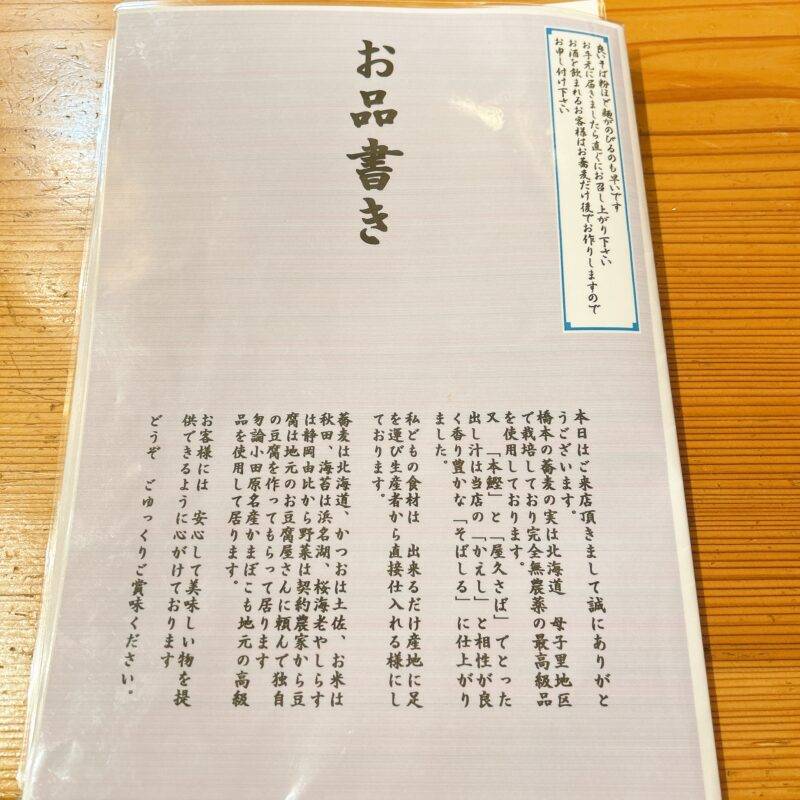 良いそば粉ほど麺がのびるのも早いです
お手元に届きましたら直ぐにお召し上がり下さい
お酒を飲まれるお客様はお蕎麦だけ後でお作りしますので
お申し付け下さい
お品書き
本日はご来店頂きまして誠にありがと
うございます。
橋本の蕎麦の実は北海道 母子里地区
で栽培しており完全無農薬の最高級品
を使用しております。
又 「本鰹」と「屋久さば」でとった
出し汁は当店の「かえし」と相性が良
く香り豊かな「そばしる」に仕上がり
ました。
私どもの食材は 出来るだけ産地に足
を運び生産者から直接仕入れる様にし
ております。
蕎麦は北海道、かつおは土佐、お米は
秋田、海苔は浜名湖、桜海老やしらす
は静岡由比から野菜は契約農家から豆
腐は地元のお豆腐屋さんに頼んで独自
の豆腐を作ってもらって居ります
勿論小田原名産かまぼこも地元の高級
品を使用して居ります。
お客様には 安心して美味しい物を提
供できるように心がけております
どうぞ ごゆっくりご賞味ください。